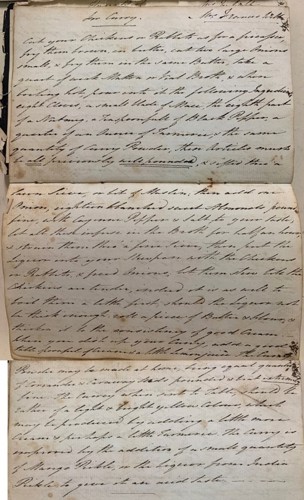 For Curry. Mrs Frances
Cut your Chickens or Rabbits as for a fricassee,
fry them brown, in butter, cut two large Onions
small, & fry them in the same Butter, take a
quart of Mutton or Veal Broth, & when
boiling hot, pour into it the following Ingredients
eight Cloves, a small blade of Mace, the eighth part
of a Nutmeg, a Teaspoonful of Black Pepper, a
quarter of an Ounce of Turmeric, & the same
quantity of Curry Powder, these Articles must
be all previously well pounded, & sifted thro'
Lawn Sieve, or bit of Muslin, then add an
Onion, eighteen blanched sweet Almonds pounded
fine, with Cayenne Pepper & salt to your taste,
let all these simmer in the Broth for half an hour,
& strain them thro' a fine Sieve, then put the
liquor into your Stewpan with the Chickens
or Rabbits & fried Onions, let them stew till the
Chickens are tender, it is as well to
boil them a little first, should the liquor not
be thick enough roll a piece of Butter in Flour, &
thicken it to the consistency of good Cream
when you dish up your Curry, add a
little The Curry
Powder may be made at home, being equal quantities
of Coriander & Cummin seeds pounded &
fine. The Curry when sent to Table should be
rather of a light & bright yellow Colour, which
may be produced by adding a little more
Cream & perhaps a little Turmeric. The Curry is
improved by the addition of a small quantity
of Mango Pickle, or the liquor from Indian
Pickle to give it an acid taste